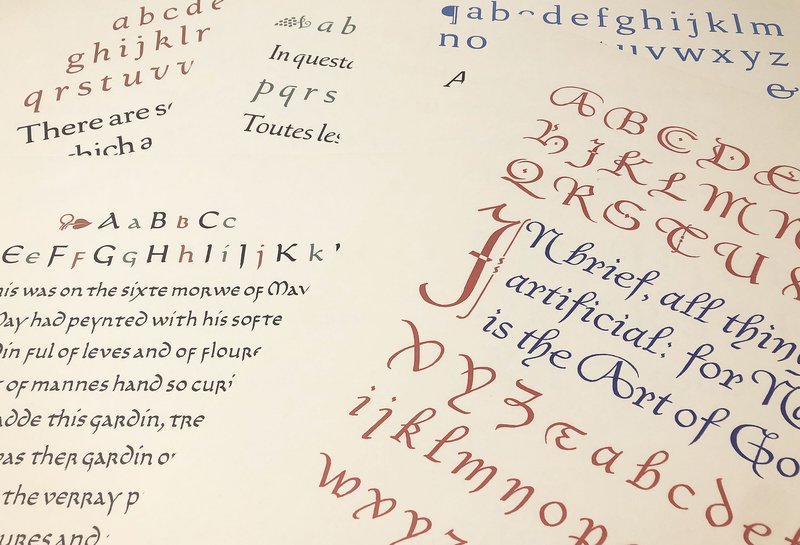 a b c d e
g h i j k l r
q r s t u v v
There are s
which a
a b
In questo
p q r s
Toutes les
¶ a b c d e f g h i j k l m
n o
u v w x y z
&
A
A a B b C c
E e F f G g H h I i J j K k
his was on the sixte morwe of May
May had peynted with his softe
din ful of leves and of floure
of mannes hand so curi
adde this gardin, tre
was ther gardin o
the verray p
ures and
A B C D E
H I K L M N
Q R S T U
IN brief, all thin
artificial: for N
is the Art of Go
X Y Z a b c d e
i j k l m n o p
w x y z